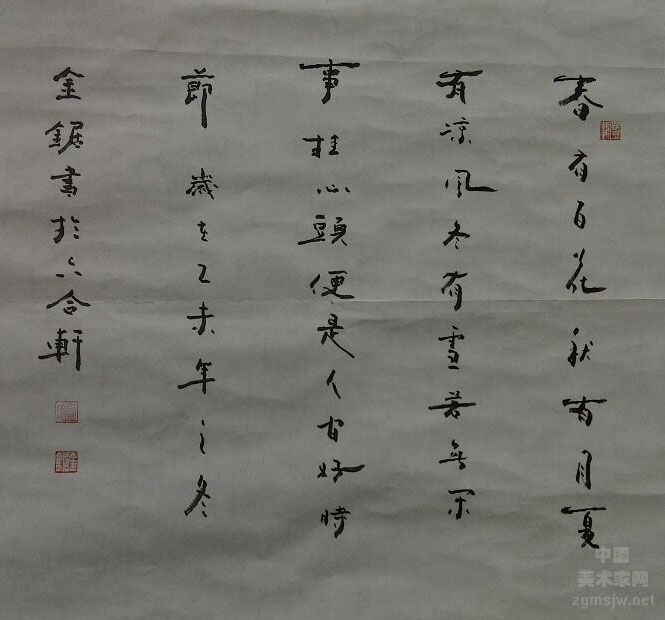 春有百花秋有月夏
有凉風冬有雪若無閑
事挂心頭便是人间好時
節 歲在乙未年之冬
金鋸書於六合軒
中国
美术家网
zgmsjw.net